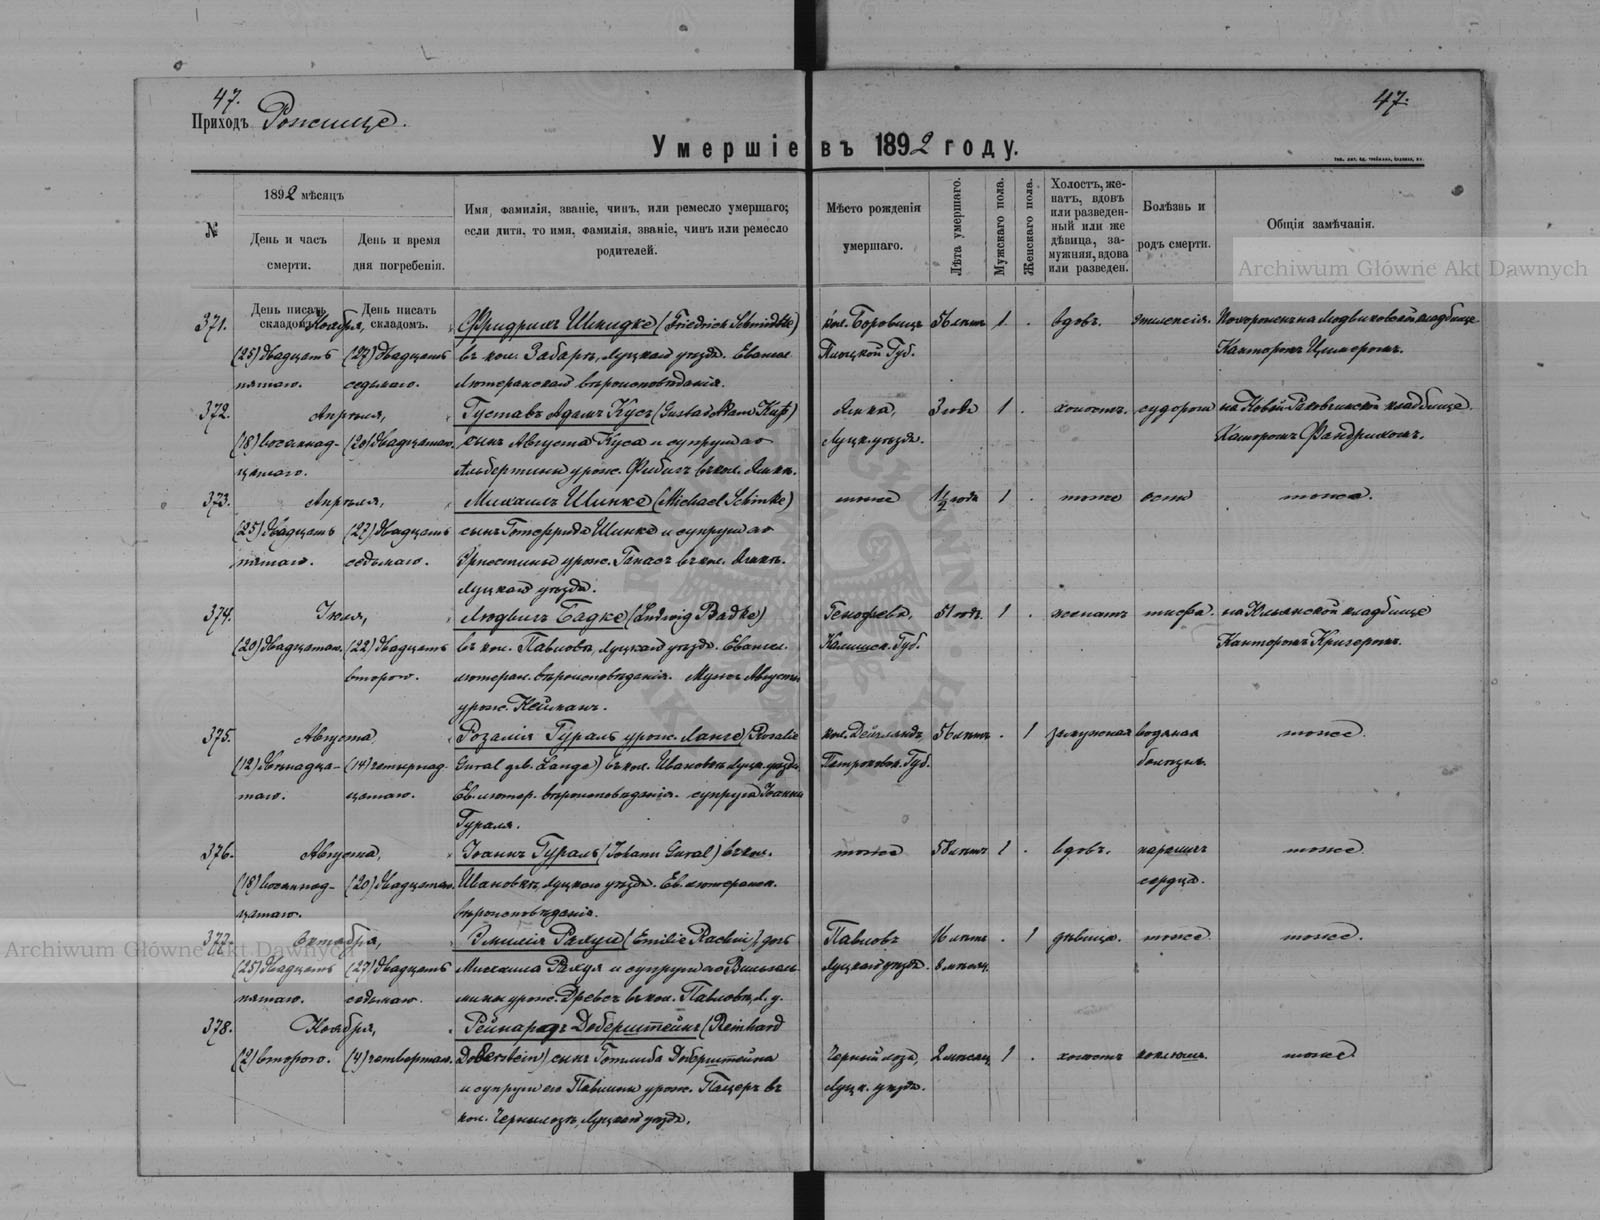 47.
47.
Приходъ Рожище.
Умершіе въ 1892 году.
№
1892 мѣсяцъ
День и часъ
смерти.
День и время
дня погребенія.
Имя, фамилія, званіе, чинъ, или ремесло умершаго;
если дитя, то имя, фамилія, званіе, чинъ или ремесло
родителей.
Мѣсто рожденія
умершаго.
Лѣта умершаго.
Мужскаго пола.
Женскаго пола.
Холостъ, же-
натъ, вдовъ
или разведен-
ный или же
дѣвица, за-
мужняя, вдова
или разведен.
Болѣзнь и
родъ смерти.
Общія замѣчанія.
Archiwum Główne Akt Dawnych
День писать
складомъ.
День писать
складомъ.
371. Ноября, Фридрихъ Шмидке (Friedrich Schmidtke) кол. Боровицъ 56 лѣтъ 1 . вдовъ. эпилепсія. Похороненъ на кладбище
(25) двадцать (27) двадцать въ кол. Забара, Луцкаго уѣзда. Евангел. Плоцкой Губ. Канторомъ
пятаго. седьмаго. Лютеранскаго вѣроисповѣданія.
372. Апрѣля, Густавъ Адамъ Кусъ (Gustav Adam Kuß) 3 года 1 . холостъ. судорога на кладбище.
(18) восемнад- (20) двадцатаго. сынъ Августа Куса и супруги его Луцк. уѣзда. Канторомъ
цатаго. Альбертины урож.
373. Апрѣля, Михаилъ Шинке (Michael Schinke) тоже 1½ года 1 . тоже оспа тоже.
(25) двадцать (27) двадцать сынъ Готфрида Шинке и супруги его
пятаго. седьмаго. Эрнестины урож.
Луцкаго уѣзда.
374. Іюля, Людвигъ Бадке (Ludwig Badke) Генофева, 51 годъ 1 . женатъ тифъ. на кладбище
(20) двадцатаго. (22) двадцать въ кол. Павловка, Луцкаго уѣзда. Евангел. Калишск. Губ. Канторомъ Кригеромъ.
второго. лютеран. вѣроисповѣданія. Мужъ Августы
урож. Нейманъ.
375. Августа, Розалія Гураль урож. Ланге (Rosalie 56 лѣтъ . 1 замужняя водяная тоже
(12) двѣнадца- (14) четырнад- Gural geb. Lange) въ кол. Ивановка Луцк. уѣзда. Петроковск. Губ. болѣзнь.
таго. цатаго. Ев. лютер. вѣроисповѣданія. супруга Іоанна
Гураля.
376. Августа, Іоаннъ Гураль (Johann Gural) въ кол. тоже 58 лѣтъ 1 . вдовъ. параличъ тоже
(18) восемнад- (20) двадцатаго. Ивановка, Луцкаго уѣзда. Ев. лютеранск. сердца.
цатаго. вѣроисповѣданія.
Archiwum Główne Akt Dawnych
377. Октября, Эмилія Рахуй (Emilie Rachui) дочь Павловъ 16 лѣтъ . 1 дѣвица. тоже тоже.
(25) двадцать (27) двадцать Михаила и супруги его Вильгель- Луцкаго уѣзда. 8 мѣсяц.
пятаго. седьмаго. мины урож. Древсъ въ кол. Павловка, Л. у.
378. Ноября, Рейнардъ Доберштейнъ (Reinhard
(2) второго. (4) четвертаго. Doberstein) сынъ Готлиба Доберштейна Чернылоза, 2 мѣсяц. 1 . холостъ коклюшъ. тоже
и супруги его Павлины урож. Пацеръ въ Луцк. уѣзда.
кол. Чернылоза, Луцкаго уѣзда.